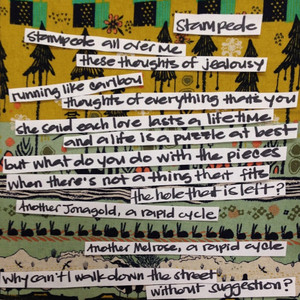 Stampede
stampede all over me
these thoughts of jealousy
running like caribou
thoughts of everything that's you
she said each love lasts a lifetime
and a life is a puzzle at best
but what do you do with the pieces
when there's not a thing that fits
the hole that is left?
Another Jonagold, a rapid cycle
Another Melrose, a rapid cycle
why can't I walk down the street
without suggestion?